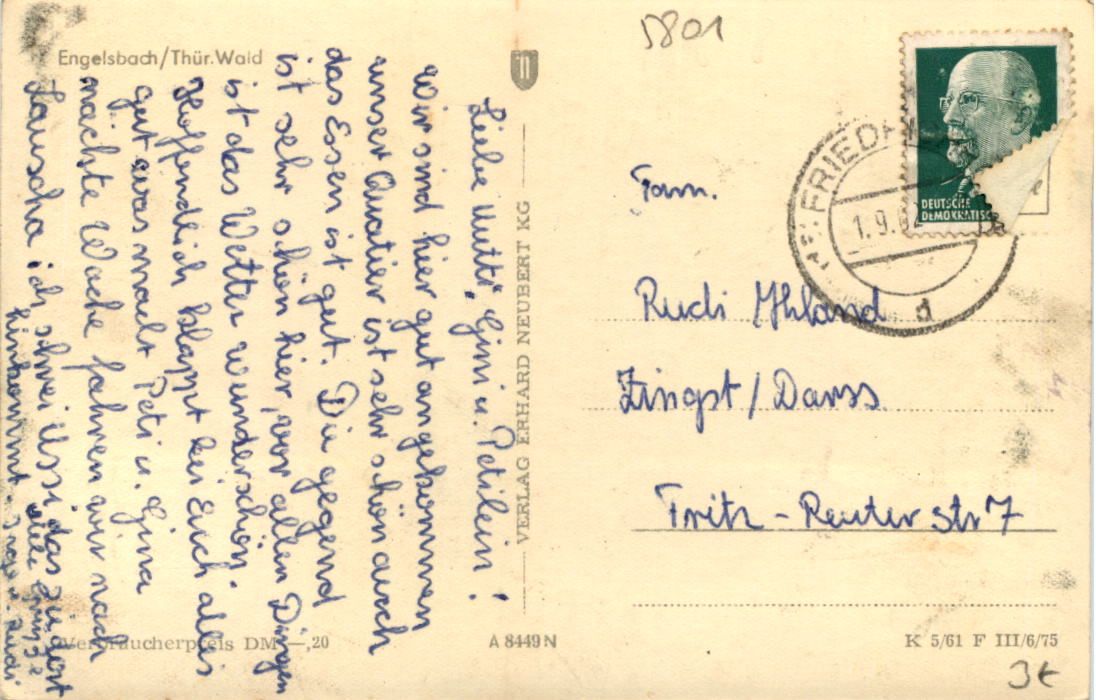 Engelsbach/Thür. Wald
Liebe Mutti, Gini u. Petilein!
Wir sind hier gut angekommen
unser Quatier ist sehr schön auch
das Essen ist gut. Die gegend
ist sehr schön hier, vor allen Dingen
ist das Wetter wunderschön.
Hoffendlich klappt bei Euch alles
gut was macht Peti u. Gina
nächste Woche fahren wir nach
Lauscha ich, schrei Ussi das
hinkommt
viele Grüße
Verbraucherpreis DM —,20
VERLAG ERHARD NEUBERT KG
A 8449 N
5801
DEUTSCHE
DEMOKRATISC
FRIED
1.9.6
d
Fam.
Rudi Ihland
Zingst/Darss.
Fritz-Reuter str 7
K 5/61 F III/6/75
3€